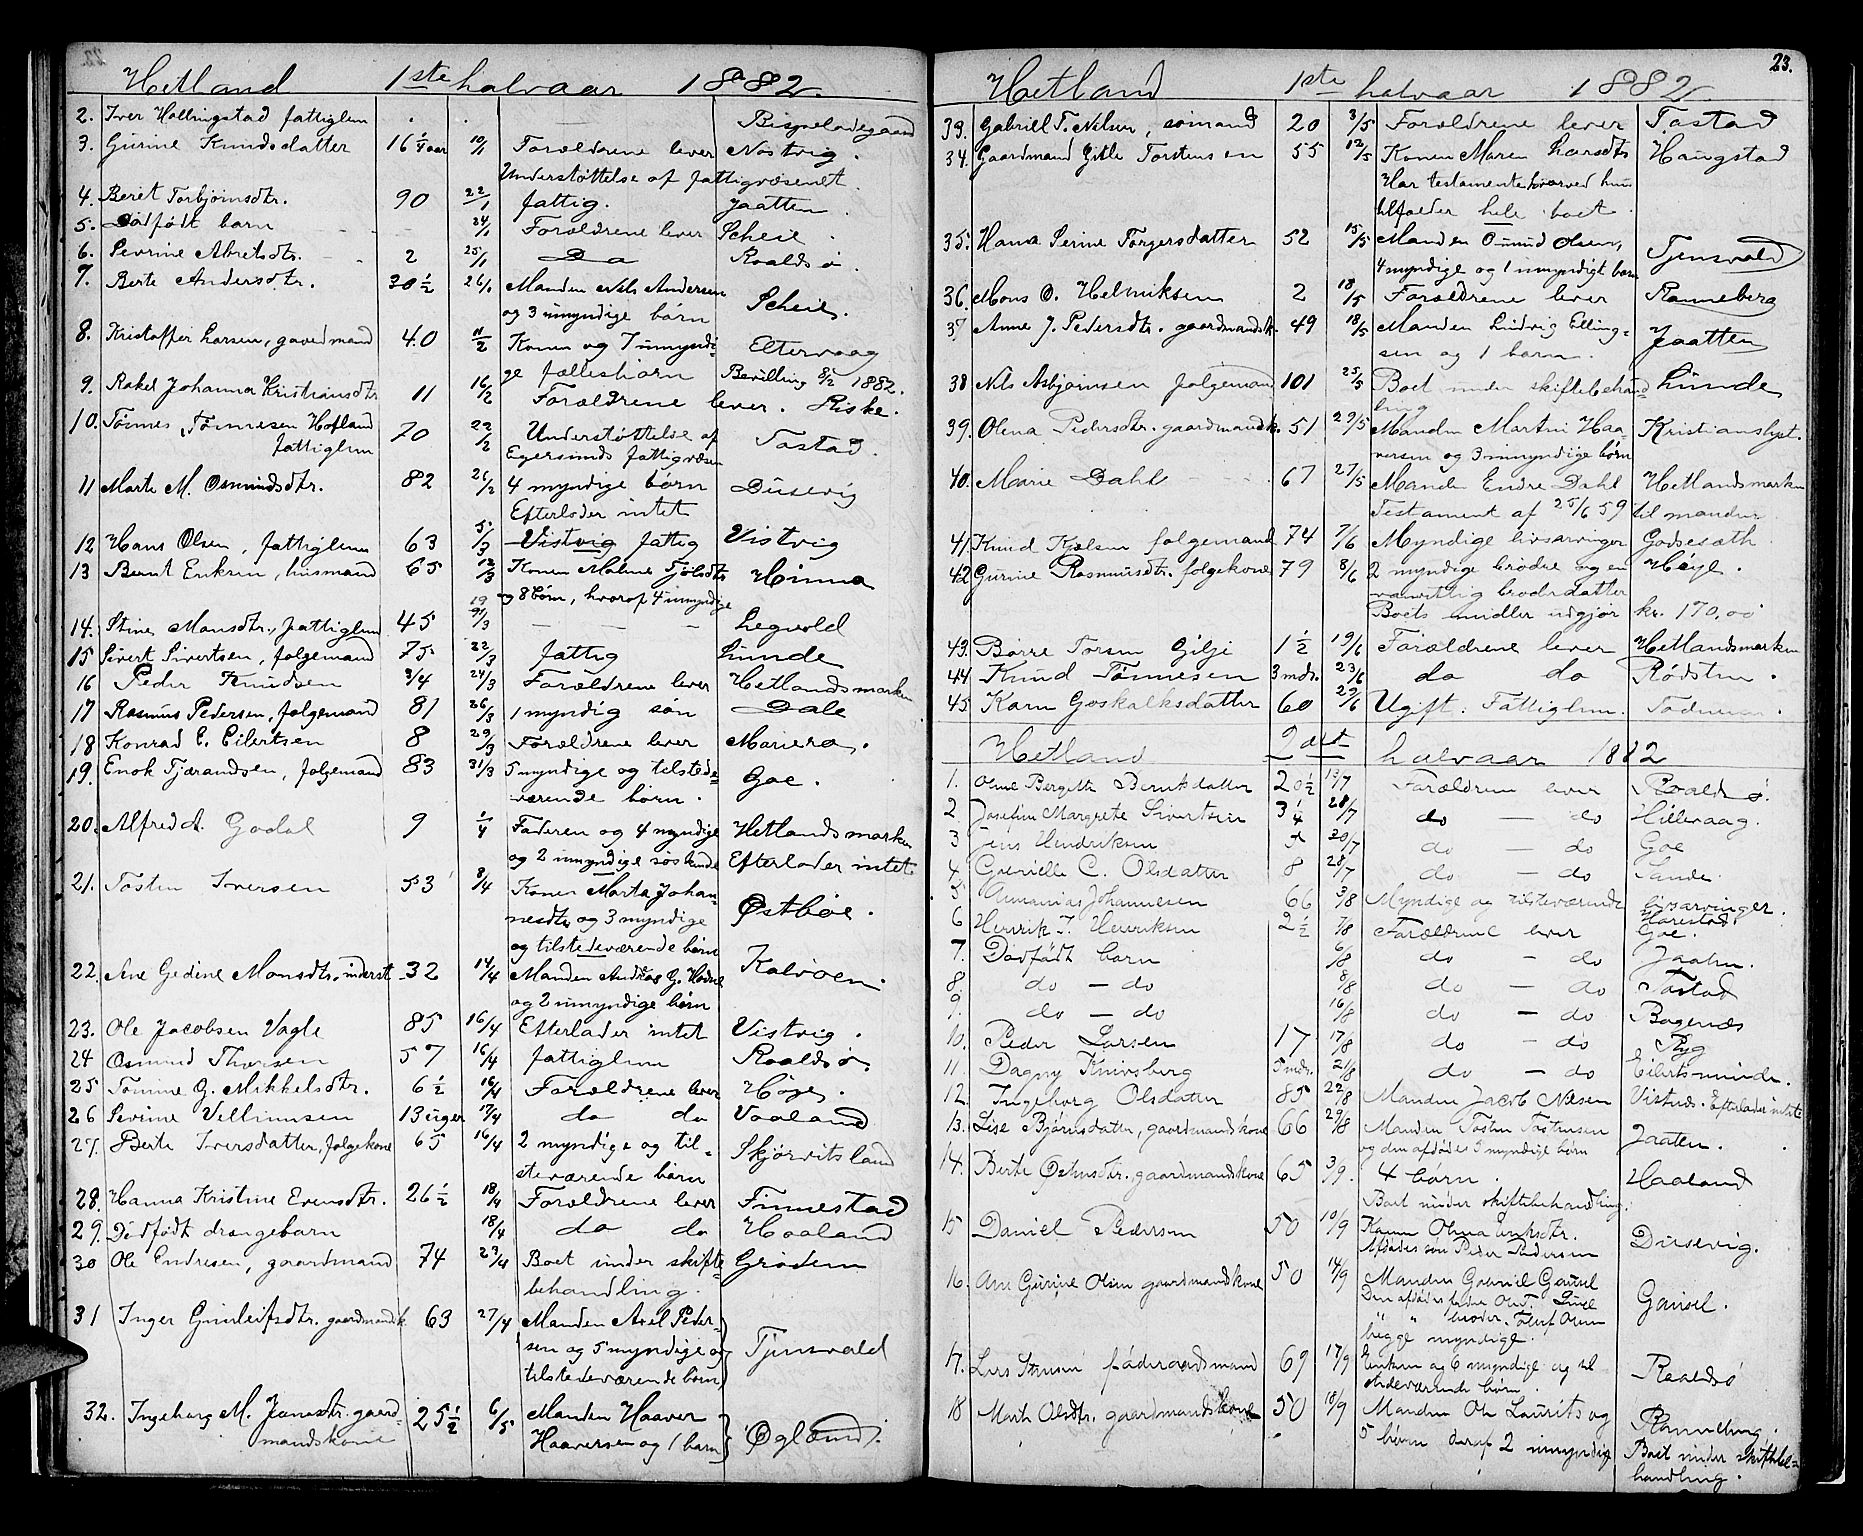 Hetland 1ste halvaar 1882.
2. Iver Hallingstad fattiglem . . — Bispeladegaard
3. Gurine Knudsdatter 16 1/4 aar 19/1 Forældrene lever Nostvig.
Understøttelse af fattigvæsenet.
4. Beret Torbjørnsdtr. 90 22/1 fattig. Jaatten.
5. Dødfødt barn 24/1 Forældrene lever Scheie.
6. Sevrine 2 25/1 Da Roaldsø.
7. Berte Andersdtr. 30 1/2 26/1 Manden Nils Andersen
og 3 umyndige børn Scheie.
8. Kristoffer Larsen, gaardmand 40 11/2 Konen og 7 umyndi-
ge fællesbørn Eltervaag
Bevilling 8/2 1882.
9. Rakel Johanna Kristiansdtr 11 16/2 Forældrene lever. Riske.
10. Tønnes Tønnesen Hofland 70 22/2 Understøttelse af Tastad.
fattiglem Egersunds fattigvæsen
11 Marte M. Osmundsdtr. 82 26/2 4 myndige børn Dusevig
Efterlader intet
12 Hans Olsen, fattiglem 63 5/3 Vistvig fattig Vistvig
13 Bernt Eriksen, husmand 65 12/3 Konen Malene Tjølsdtr Hinna
og 8 børn, hvoraf 4 umyndige
14. Stine Monsdtr., fattiglem 45 19/3 — — — Legvold
15 Sivert Sivertsen, folgemand 75 22/3 fattig Lunde
16 Peder Knudsen 3/4 24/3 Forældrene lever Hetlandsmarken
17 Rasmus Pedersen, folgemand 81 26/3 1 myndig søn Dale
18 Konrad E. Eilertsen 8 29/3 Forældrene lever Mariero.
19. Enok Tjærandsen, folgemand 83 31/3 5 myndige og tilstede=
værende børn. Goe.
20. Alfred A. Godal 9 1/4 Faderen og 4 myndige Hetlandsmarken
og 2 umyndige søskende Efterlader intet
21. Tosten Iversen 53 8/4 Konen Marta Johan-
nesdtr og 3 myndige Østbøe.
og tilstedeværende børn
22. Ane Gedine Monsdtr. inderst 32 14/4 Manden Andreas G. Hodne Kalvøen.
og 2 umyndige børn
23. Ole Jacobsen Vagle 85 16/4 Efterlader intet Vistvig.
24 Osmund Thorsen 57 16/4 fattiglem Roaldsø.
25 Tomine G. Mikkelsdtr. 6 1/2 16/4 Forældrene lever Høge.
26 Sevrine Vellumsen 13 uger 17/4 do do Vaaland
27. Berte Iversdatter, folgekone 65 16/4 2 myndige og til-
stedeværende børn Skjørvitsland
28. Hanna Kristine Evensdtr. 26 1/2 18/4 Forældrene lever Finnestad
29. Dødfødt drengebarn 18/4 do do Haaland
30 Ole Endresen, gaardmand 74 23/4 Boet under skifte= Grødem
behandling.
31 Inger Gunleifsdtr. gaardmandsk. 63 27/4 Manden Axel Peder-
sen og 5 myndige og Tjensvold
tilstedeværende børn
32. Ingeborg M. Jonasdtr. gaard- 25 1/2 6/5 Manden Haaver
mandskone Haaversen og 1 barn Øgland.
23.
Hetland 1ste halvaar 1882.
33. Gabriel T. Nilsen, sømand 20 3/5 Forældrene lever Tastad
34. Gaardmand Gitle Torstensen 55 12/5 Konen Maren Larsdtr Haugstad
Har testamente hvorved hun
tilfalder hele boet.
35. Hana Serine Torgersdatter 52 15/5 Manden Osmund Olsen,
4 myndige og 1 umyndigt barn Tjensvold
36. Mons O. Helmiksen 2 18/5 Forældrene lever Ranneberg
37 Anne J. Pedersdtr. gaardmandsk. 49 18/5 Manden Ludvig Elling-
sen og 1 barn. Jaatten
38 Nils Asbjørnsen folgemand 101 25/5 Boet under skiftebehand= Lunde
ling
39. Olena Pedersdtr. gaardmandsk. 51 27/5 Manden Martin Haa- Kristianslyst.
versen og 3 umyndige børn
40. Marie Dahl 67 27/5 Manden Endre Dahl Hetlandsmarken
Testament af 25/6 59 til manden
41. Knud Kjelsen folgemand 74 7/6 Myndige livsarvinger Godsesæth
42. Gurine Rasmusdtr. folgekone 79 8/6 2 myndige brødre og en Høge.
vanvittig broderdatter
Boets midler udgjør kr. 170,00
43. Børre Torsen Gilje 1 1/2 19/6 Forældrene lever Hetlandsmarken
44. Knud Tønnesen 3 mdr. 23/6 do do Rødsten.
45. Karn Goskalksdatter 60 29/6 Ugift. Fattiglem.
Hetland 2det halvaar 1882
1. Oline Bergitte Deriksdatter 20 1/2 13/7 Forældrene lever Roaldsø.
2. Josefine Margrete Sivertsen 3 1/4 28/7 do — do Hillevaag.
3 Jens Hendriksen 20/7 do — do Goe
4. Gurielle C. Olsdatter 8 28/7 do — do Sande
5 Ananias Johannesen 66 3/8 Myndige og tilsteværende livsarvinger.
Harestad.
6 Henrik T. Henriksen 2 1/2 7/8 Forældrene lever Goe.
7. Dødfødt barn 6/8 do — do Jaatten.
8. do — do 8/8 do — do Tastad
9. do — do 16/8 do — do Bogenæs
10. Peder Larsen 17 17/8 do — do Ryg
11. Dagny Knivsberg 5 mdr. 21/8 do — do Eilertsminde.
12. Ingeborg Olsdatter 85 22/8 Manden Jacob Nilsen Efterlader intet
13. Lise Bjørnsdatter, gaardmandskone 66 29/8 Manden Tosten Tostensen Jaaten.
og den afdødes 5 myndige børn
14. Berte Østensdtr. gaardmandskone 65 3/9. 4 børn. Haaland
Boet under skiftebehandling.
15 Daniel Pedersen 50 10/9 Konen Olena Eriksdtr. Dusevig.
Afdødes søn Peder Pedersen
16. Ane Gurine Olsen gaardmandskone 50 14/9 Manden Gabriel Gausel Gausel.
Den afdødes fader
" " broder. Oluf Olsen
begge myndige.
17. Lars føderaadsmand 69 17/9 Enken og 6 myndige og til Roaldsø
stedeværende børn.
18 Marte Olsdtr. gaardmandskone 50 18/9 Manden Ole Laurits og
5 børn deraf 2 umyndig
Boet under skiftebe=
handling.